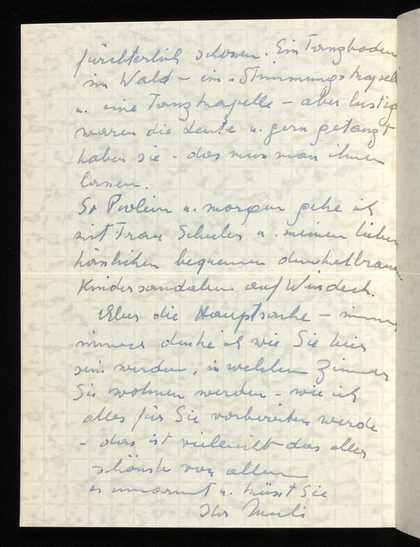 fürchterlich schonen. Ein Tanzboden
im Wald – ein "Stimmungskapelle
u. eine Tanzkapelle – aber lustig
waren die Leute u. gern getanzt
haben sie – das muss man ihnen
lassen.
So u. morgen gehe ich
mit Frau Schuler u. meinen lieben
hässlichen bequemen dunkelbraunen
Kindersandalen auf Windeck.
Aber die Hauptsache – immer
immer denke ich wie Sie hier
sein werden, in welchem Zimmer
Sie wohnen werden – wie ich
alles für Sie vorbereiten werde
– das ist vielleicht das aller
schönste von allem
es umarmt u. küsst Sie
Ihr